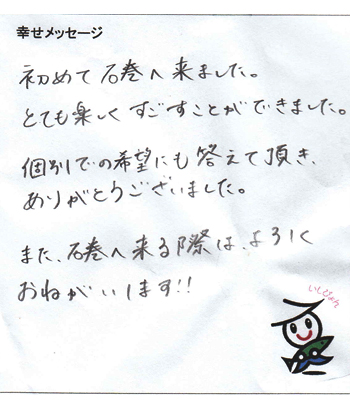 幸せメッセージ
初めて石巻へ来ました。
とても楽しくすごすことができました。
個別での希望にも答えて頂き、
ありがとうございました。
また、石巻へ来る際は、よろしく
おねがいします!!
いしぴょん